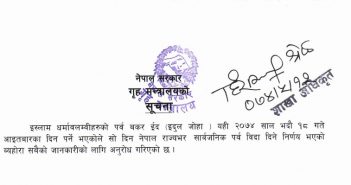 नेपाल सरकार
गृह मन्त्रालयको
सूचना
०७४/५/११
शाखा अधिकृत
इस्लाम धर्मावलम्बीहरुको पर्व बकर ईद (इदुल जोहा ) यही २०७४ साल भदौ १८ गते
आइतबारका दिन पर्ने भएकोले सो दिन नेपाल राज्यभर सार्वजनिक पर्व विदा दिने निर्णय भएको
व्यहोरा सबैको जानकारीको लागि अनुरोध गरिएको छ ।